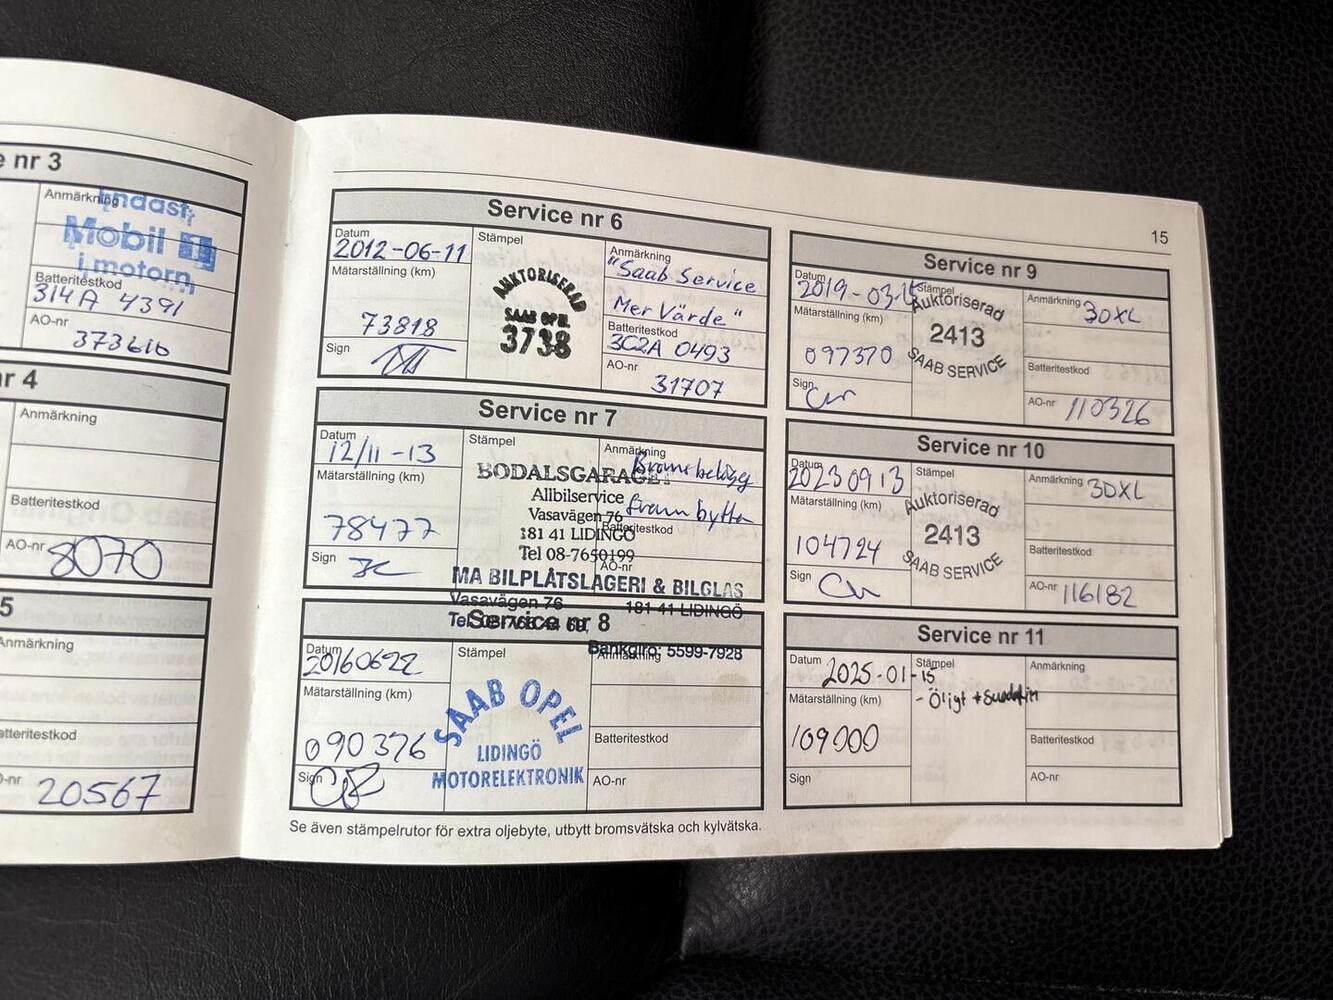 e nr 3
Anmärkning
Endast
Mobil 1
i motorn
Batteritestkod
314A 4391
AO-nr
373616
r 4
Anmärkning
Batteritestkod
AO-nr
8070
5
Anmärkning
atteritestkod
-nr
20567
Service nr 6
Datum
2012-06-11
Mätarställning (km)
73818
Sign
Stämpel
AUKTORISERAD
SAAB OPEL
3738
Anmärkning
"Saab Service
Mer Värde"
Batteritestkod
3C2A 0493
AO-nr
31707
Service nr 7
Datum
12/11-13
Mätarställning (km)
78477
Sign
Stämpel
BODALSGARAGET
Allbilservice
Vasavägen 76
181 41 LIDINGÖ
Tel 08-7650199
MA BILPLÅTSLAGERI & BILGLAS
Vasavägen 76 181 41 LIDINGÖ
Bankgiro: 5599-7928
Anmärkning
Bromsbelägg
fram bytta
Batteritestkod
AO-nr
Service nr 8
Datum
20160622
Mätarställning (km)
090376
Sign
Stämpel
SAAB OPEL
LIDINGÖ
MOTORELEKTRONIK
Anmärkning
Batteritestkod
AO-nr
Se även stämpelrutor för extra oljebyte, utbytt bromsvätska och kylvätska.
15
Service nr 9
Datum
2019-03-
Mätarställning (km)
097370
Sign
Stämpel
Auktoriserad
2413
SAAB SERVICE
Anmärkning
30XL
Batteritestkod
AO-nr
110326
Service nr 10
Datum
20230913
Mätarställning (km)
104724
Sign
Stämpel
Auktoriserad
2413
SAAB SERVICE
Anmärkning
30XL
Batteritestkod
AO-nr
116182
Service nr 11
Datum
2025-01-15
Mätarställning (km)
109000
Sign
Stämpel
- Öljy +
Anmärkning
Batteritestkod
AO-nr